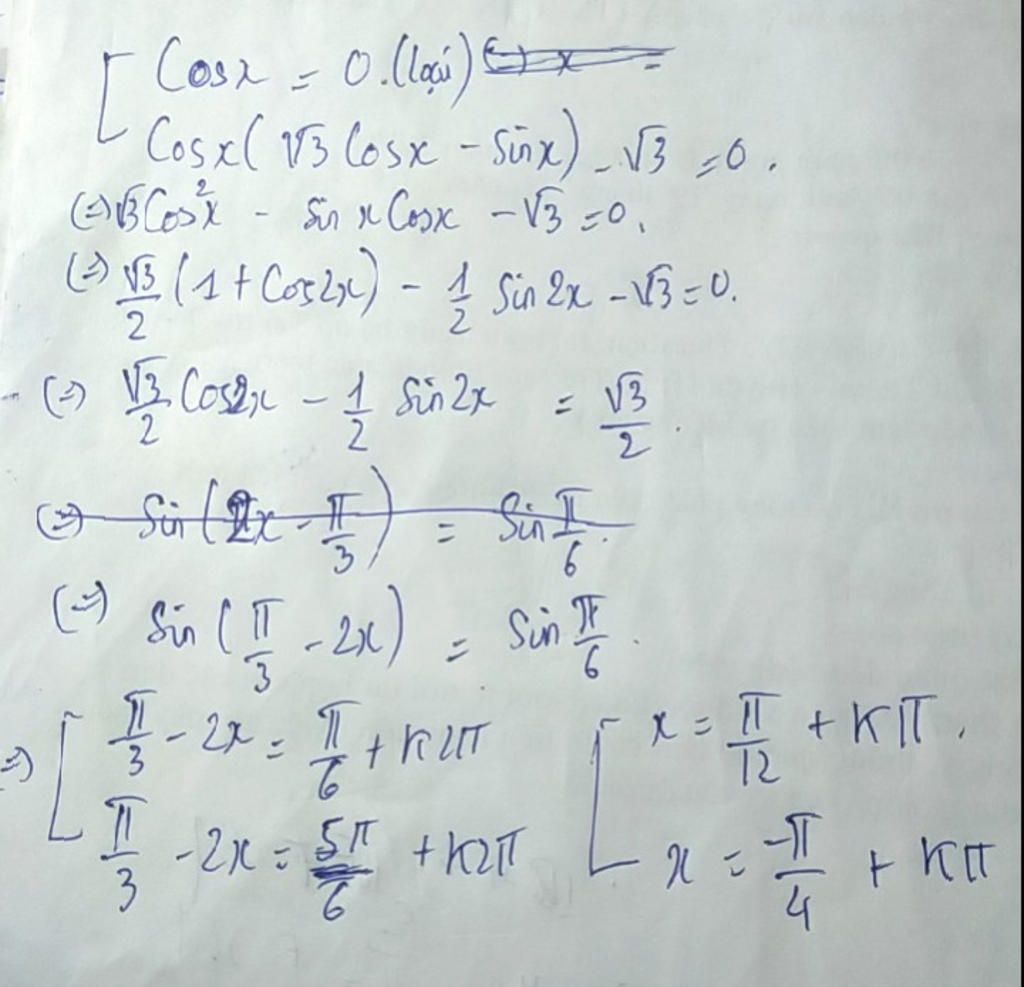 [ Cosx = 0. (loại)
Cosx( √3 Cosx - Sinx) - √3 = 0.
(=) √3 Cos²x - Sin x Cosx - √3 = 0.
(=) √3/2 (1 + Cos2x) - 1/2 Sin 2x - √3 = 0.
(=) √3/2 Cos2x - 1/2 Sin 2x = √3/2.
(=) Sin (2x - π/3) = Sin π/6.
(=) Sin (π/3 - 2x) = Sin π/6.
=) [ π/3 - 2x = π/6 + K2π [ x = π/12 + Kπ.
π/3 - 2x = 5π/6 + K2π x = -π/4 + Kπ